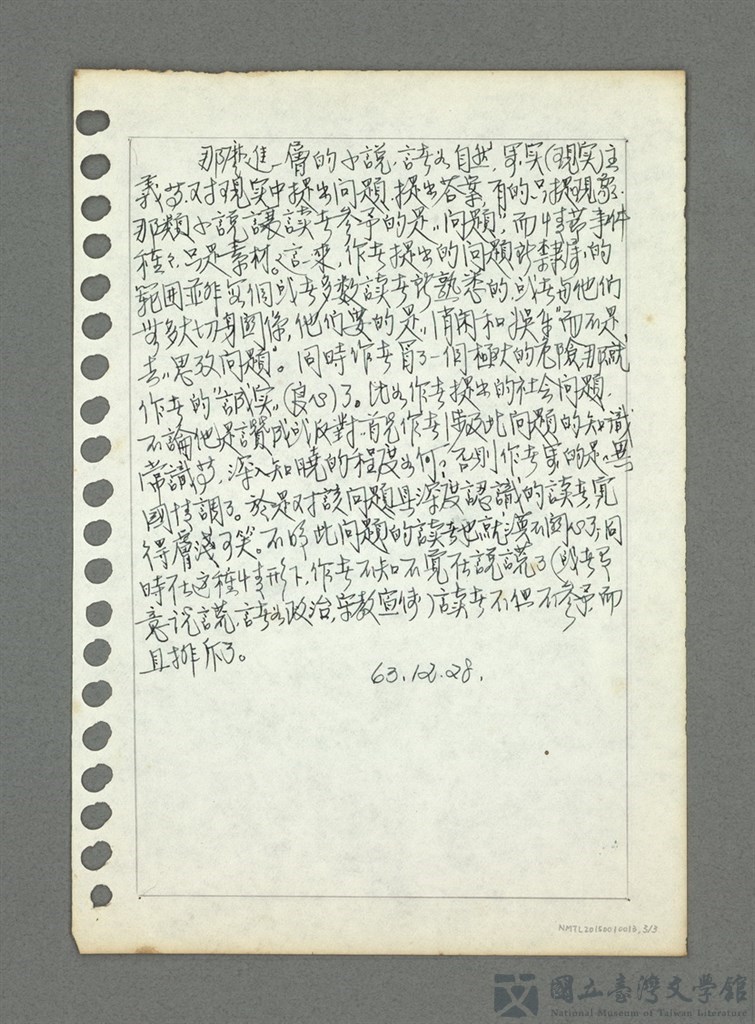 那麼進一層的小說,諸如自然,寫实(現实)主
義等对於現实中提出问題,提出答案,有的只提現象.
那類小說讓讀者参予的是"问題",而情節事件
種々只是素材。這一來,作者提出的问題所隸属的
範囲並非每個或者多数讀者所熟悉的,或者与他們
無多大切身関係,他們要的是"消闲和娛樂"而不是
去"思攷问題"。同時作者冒了一個極大的危險,那就
作者的"誠实"(良心)了。比如作者提出的社会问題,
不論他是讚成或反對,首先作者涉及此问題的知識
常識等,深入知曉的程度如何?否則作者寫的是"異
國情調"了。於是对該问題具深度認識的讀者覚
得膚淺可笑。不明此问題的讀者也就漠不関心了,同
時在这種情形下,作者不知不覚在說謊了(或者有
意說謊,諸如政治,宗教宣傳)讀者不但不参予而
且排斥了。
63.12.28.
NMTL20150010018, 3/3
國立臺灣文學館
National Museum of Taiwan Literature